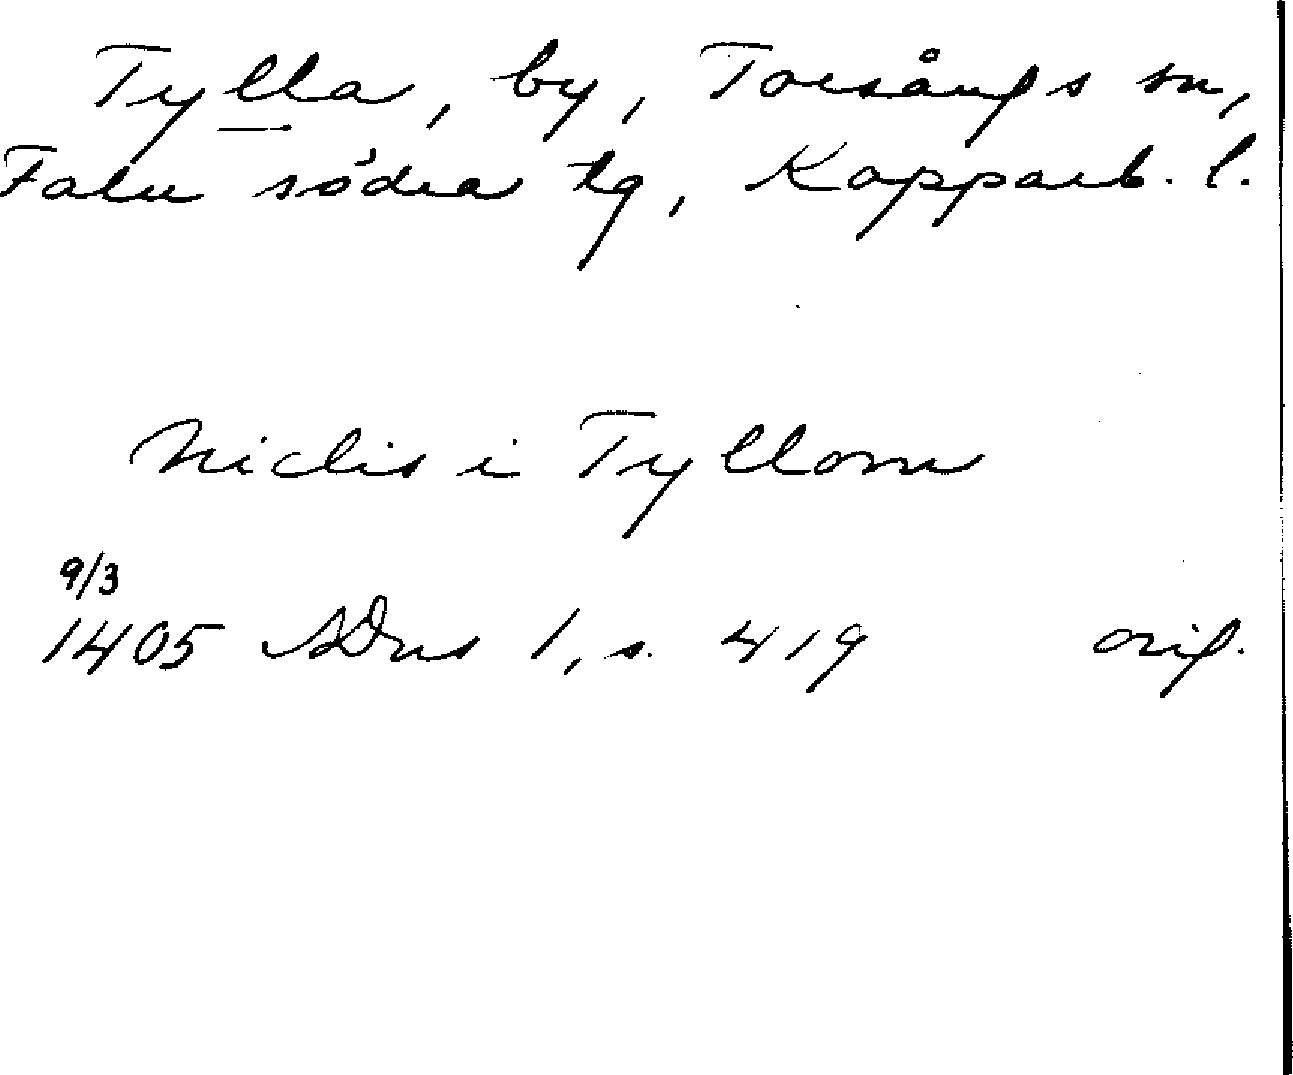 Tylla, by, Torsångs sn,
Falu södra tg, Kopparb. l.
Niclis i Tyllom
9/3
1405 SDns 1, s. 419 orig.